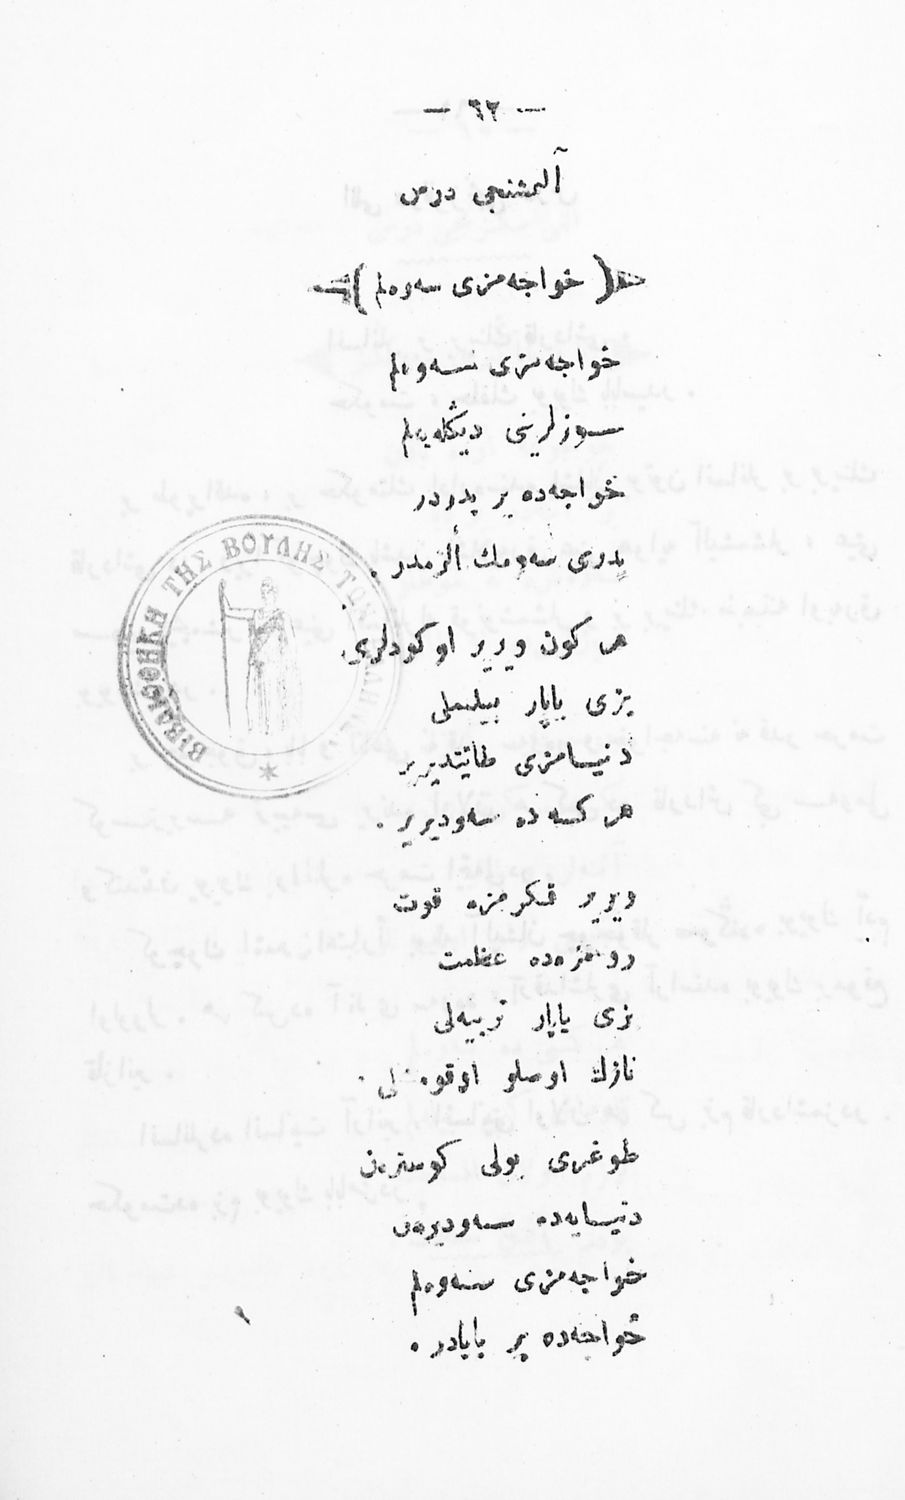 — ٦٢ —
آلتمشنجی درس
( خواجه‌مزی سه‌وه‌لم )
خواجه‌مزی سه‌وه‌لم
سوزلرینی دیڭله‌یه‌لم
خواجه‌ده بر پدردر
پدری سه‌ومك ألزمدر .
هر كون ویریر اوكودلری
بزی یاپار بیلیملی
دنیامزی طانیتدیریر
هر كسه ده سه‌ودیریر .
ویریر فكرمزه قوت
روحمزه‌ده عظمت
بزی یاپار تربیه‌لی
نازك اوصلو
طوغری یولی كوسترەن
دنیایه‌ده سه‌ودیره‌ن
خواجه‌مزی سه‌وه‌لم
خواجه‌ده بر بابادر .
ΒΙΒΛΙΟΘΗΚΗ ΤΗΣ ΒΟΥΛΗΣ ΤΩΝ